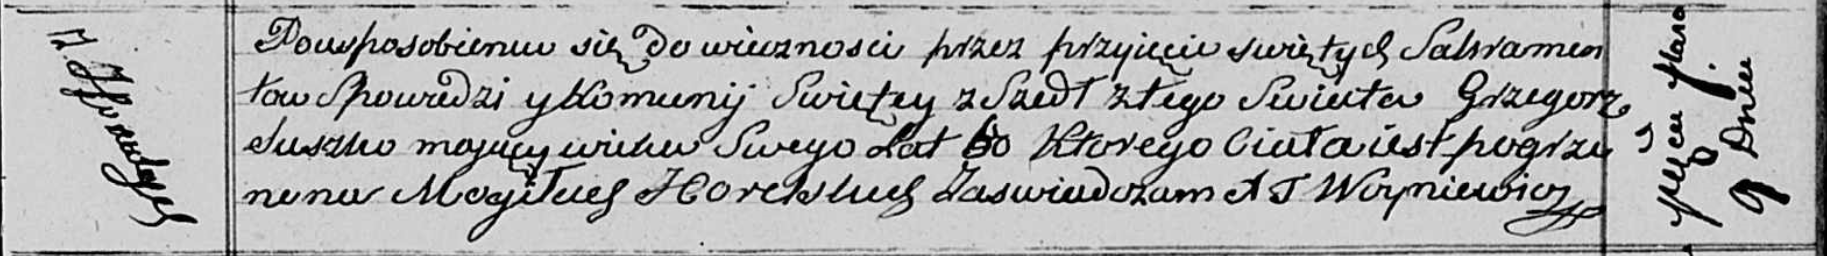 Po uwsposobieniu się do wieczności przez przyięcie swiętych Sakramen
tow Spowiedzi y Komunij Swiętey z Szedł z tego Swiata Grzegorz
Suszko maiący wieku Swego Lat 60 Ktorego Ciało iest pogrze
nena Mogiłkach Horelskich Zaswiadczam A T Woyniewicz
9 Dnia